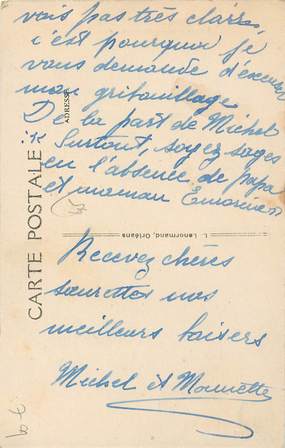 vois pas très clair
c'est pourquoi je
vous demande d'excuser
mon gribouillage
De la part de Michel
Surtout, soyez sages
en l'absence de papa
et maman
Recevez chères
sœurettes nos
meilleurs baisers
Michel et Mounette
CARTE POSTALE
ADRESSE
L. Lenormand, Orléans